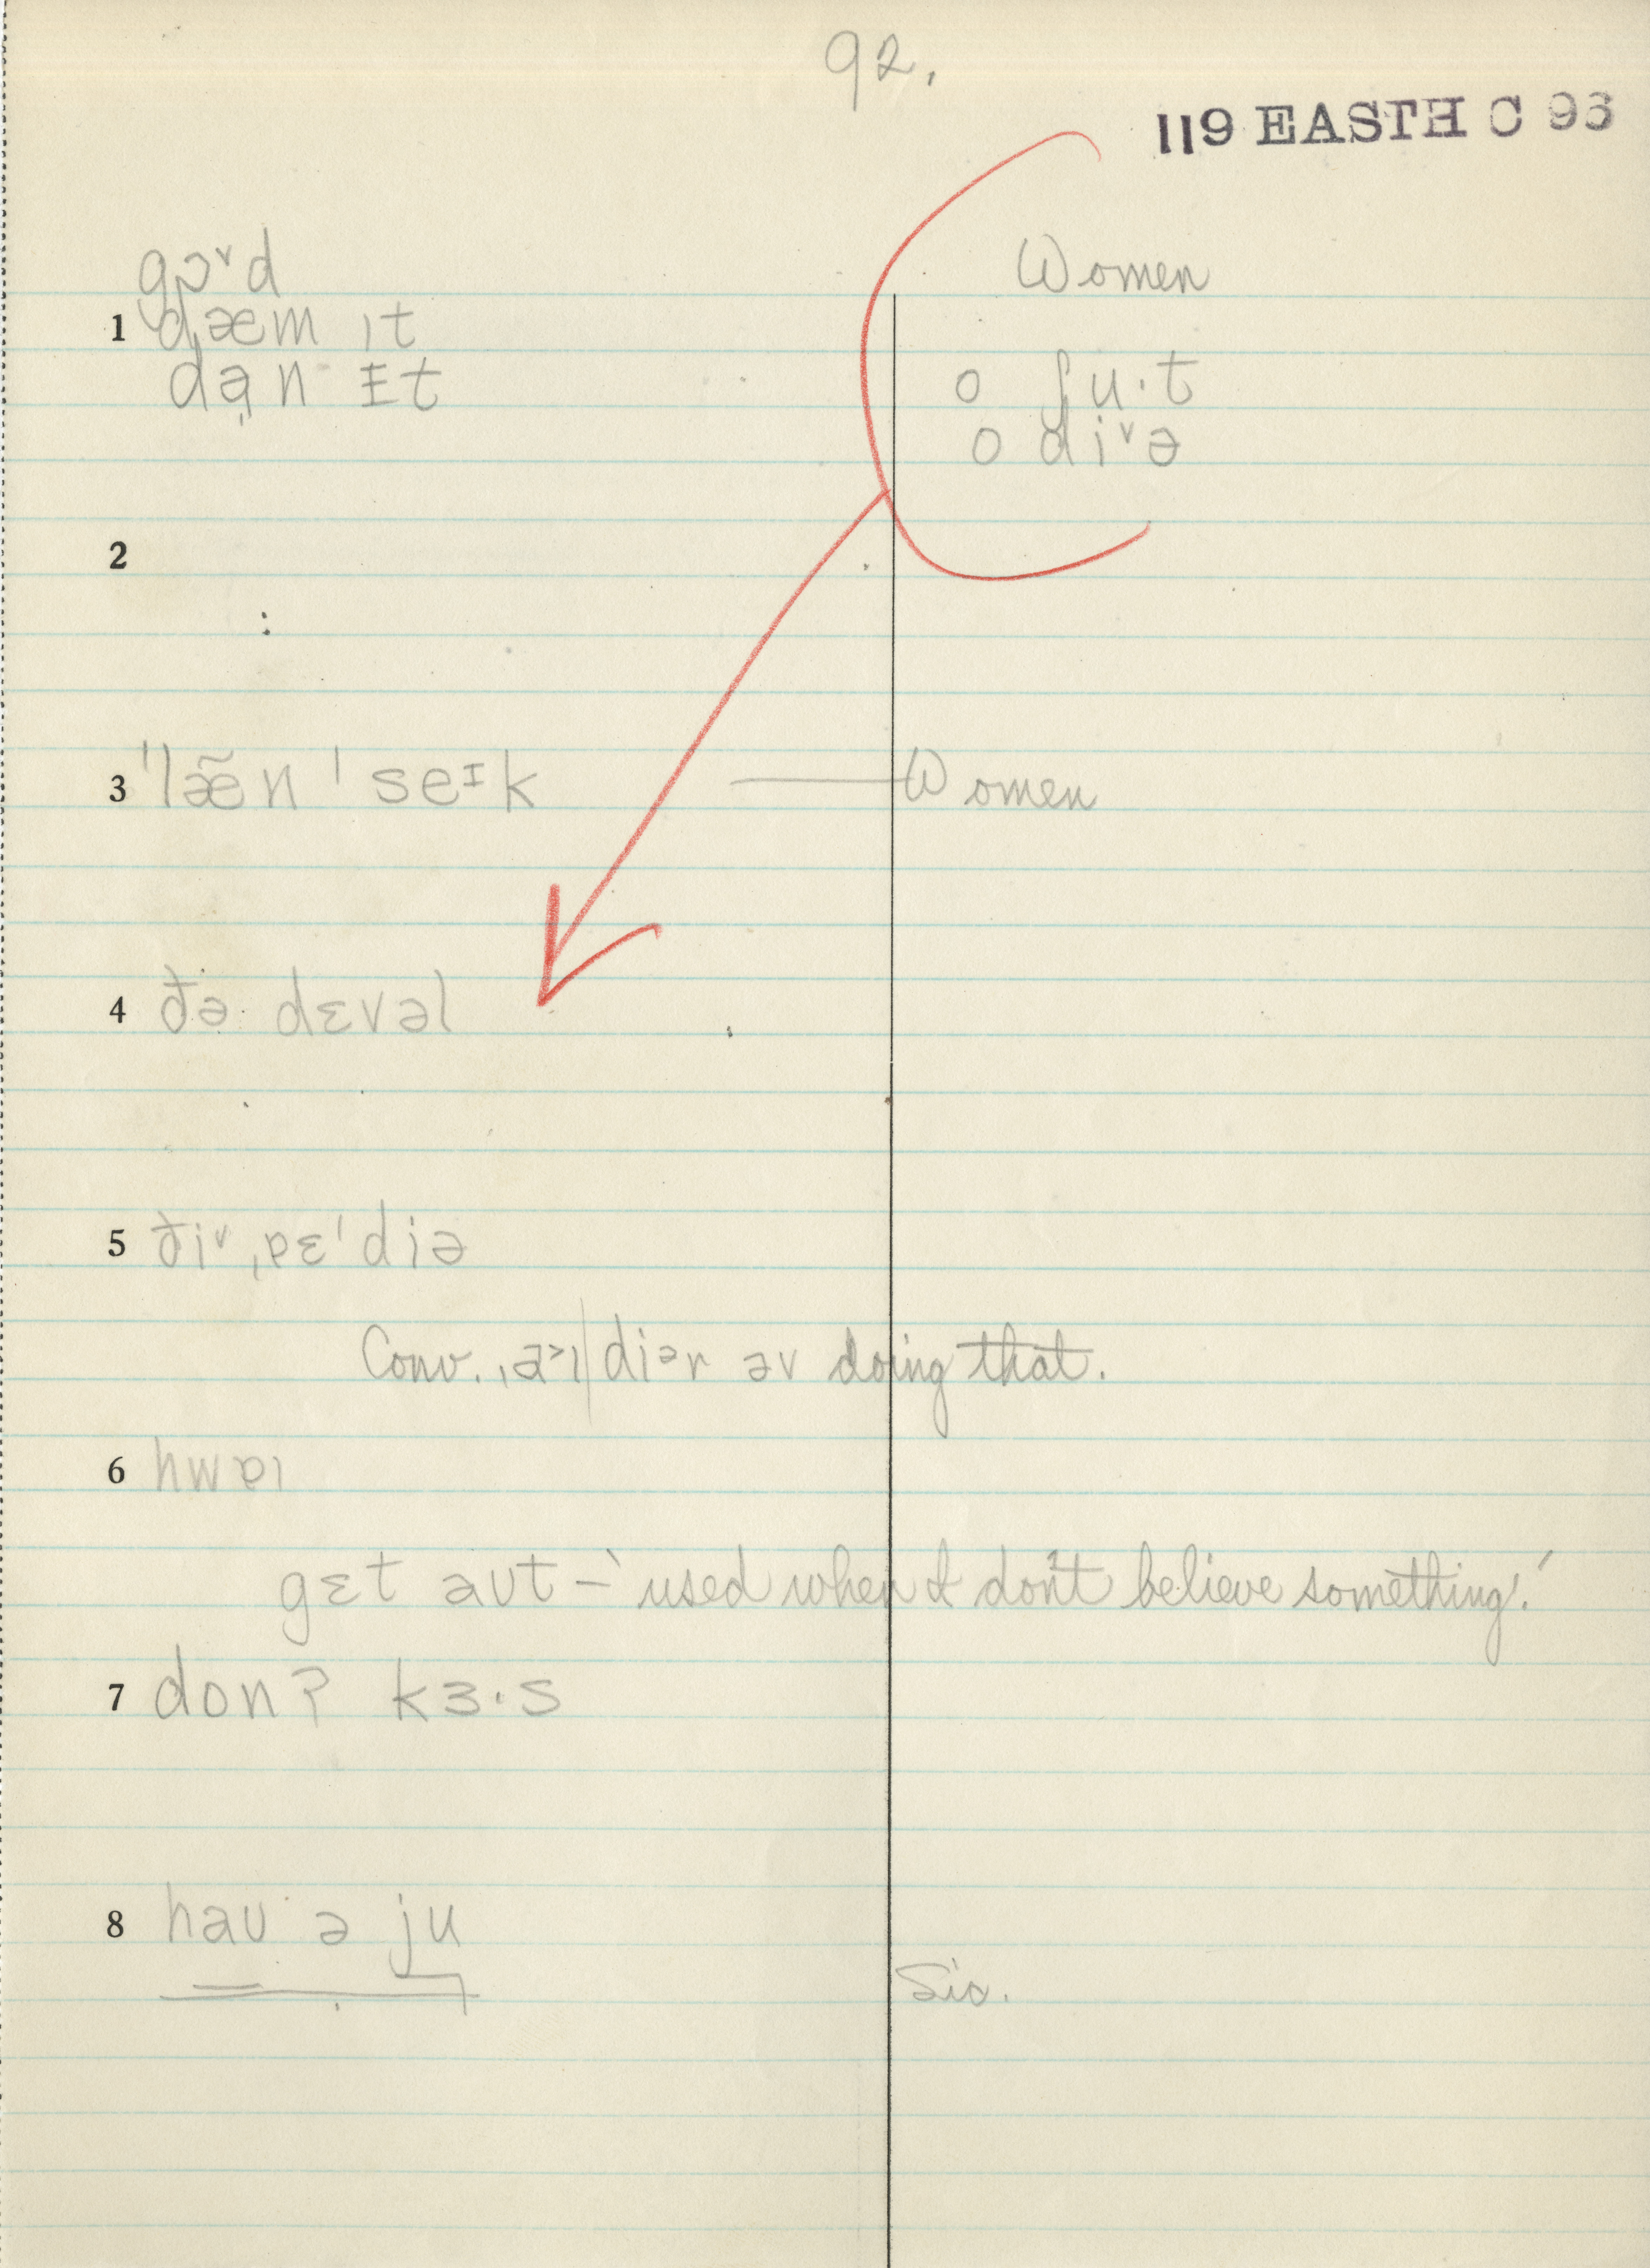 92.
119 EASTH C 93
gɒ˅d
Women
1 dæm ɪt
dạn ɪt
o ʃu·t
o di˅ə
2
3 ˈlæ̃n ˈseᶦk — Women
4 ðə dɛvəl
5 ði˅ ˌɐɛˈdiə
Conv. ˌa˃ɪ|diᵊr əv doing that.
6 hwɐɪ
gɛt aʊt – 'used when I don't believe something.'
7 donʔ kɜ·s
8 haʊ ə ju
Sic.